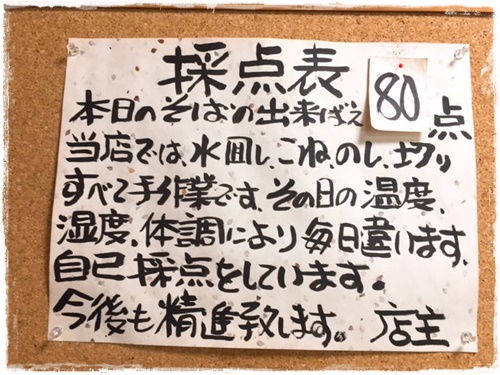 採点表
本日のそばの出来ばえ 80 点
当店では、水回し、こね、のし、切り
すべて手作業です。その日の温度、
湿度、体調により毎日違います。
自己採点をしています。
今後も精進致します。 店主